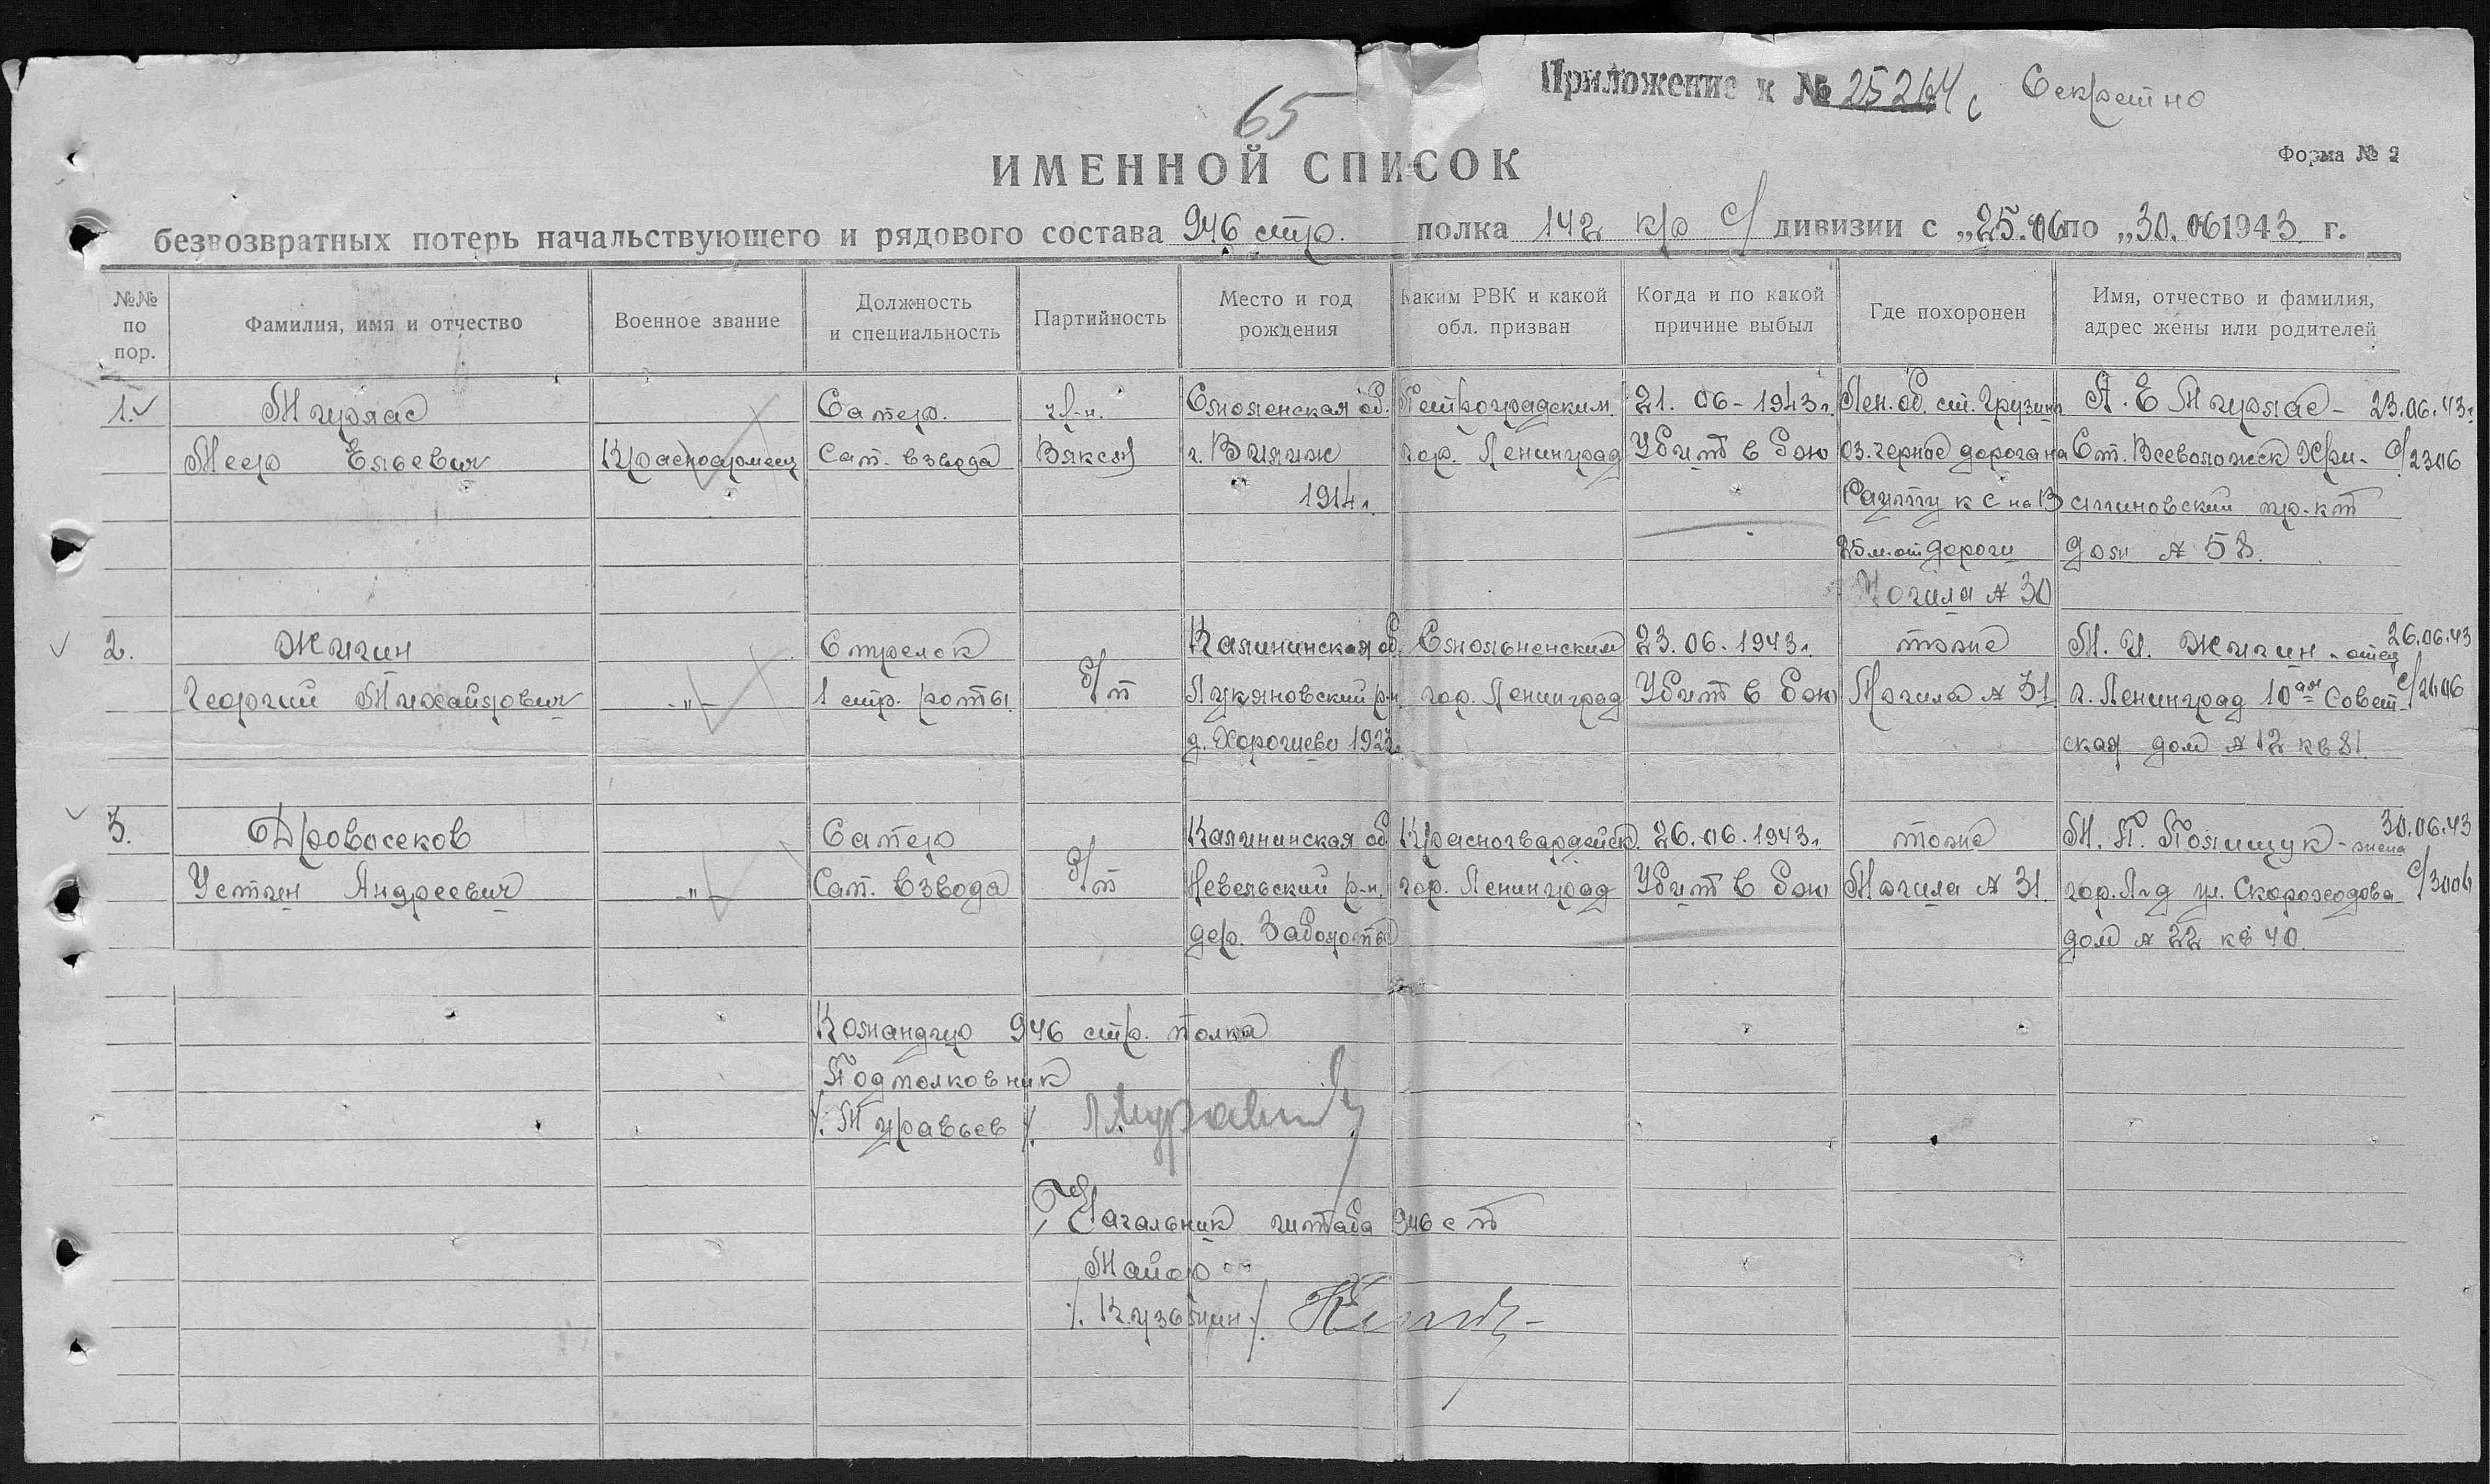 Приложение к № 25264с Секретно
65
ИМЕННОЙ СПИСОК
Форма № 2
безвозвратных потерь начальствующего и рядового состава 946 стр. полка 142 к/р с/ дивизии с „25.06 по „30.06 1943 г.
№№ по пор.
Фамилия, имя и отчество
Военное звание
Должность и специальность
Партийность
Место и год рождения
Каким РВК и какой обл. призван
Когда и по какой причине выбыл
Где похоронен
Имя, отчество и фамилия, адрес жены или родителей
1. Сапер. чл-н. Смоленская об. Петроградским 21.06-1943г. Лен. об. ст. Грузино А. Е 23.06.43г.
Меер Красноармеец Сап. взвода г. Велиж гор. Ленинград Убит в бою оз. черное дорога на Ст. Всеволожск с/2306
1914г. к С на В пр-кт
25 м. от дороги дом № 58.
Могила № 30
2. Жигин Стрелок Калининская об. Смольненским 23.06.1943г. тоже М. И. Жигин - отец 26.06.43
Георгий Михайлович -"- 1 стр. роты б/п р-н. гор. Ленинград Убит в бою Могила № 31 г. Ленинград 10ая Совет- с/2606
д. ская дом № 12 кв 81.
3. Дровосеков Сапер Калининская об. Красногвардейск. 26.06.1943г. тоже М. П. Полищук - жена 30.06.43
Устин Андреевич -"- Сап. взвода б/п Невельский р-н. гор. Ленинград Убит в бою Могила № 31. гор. Л-д ул. Скороходова с/3006
дер. дом № 22 кв 40.
Командир 946 стр. полка
Подполковник
/. Муравьев /.
Начальник штаба 946 с п
Майор
/. Кузьмин /.